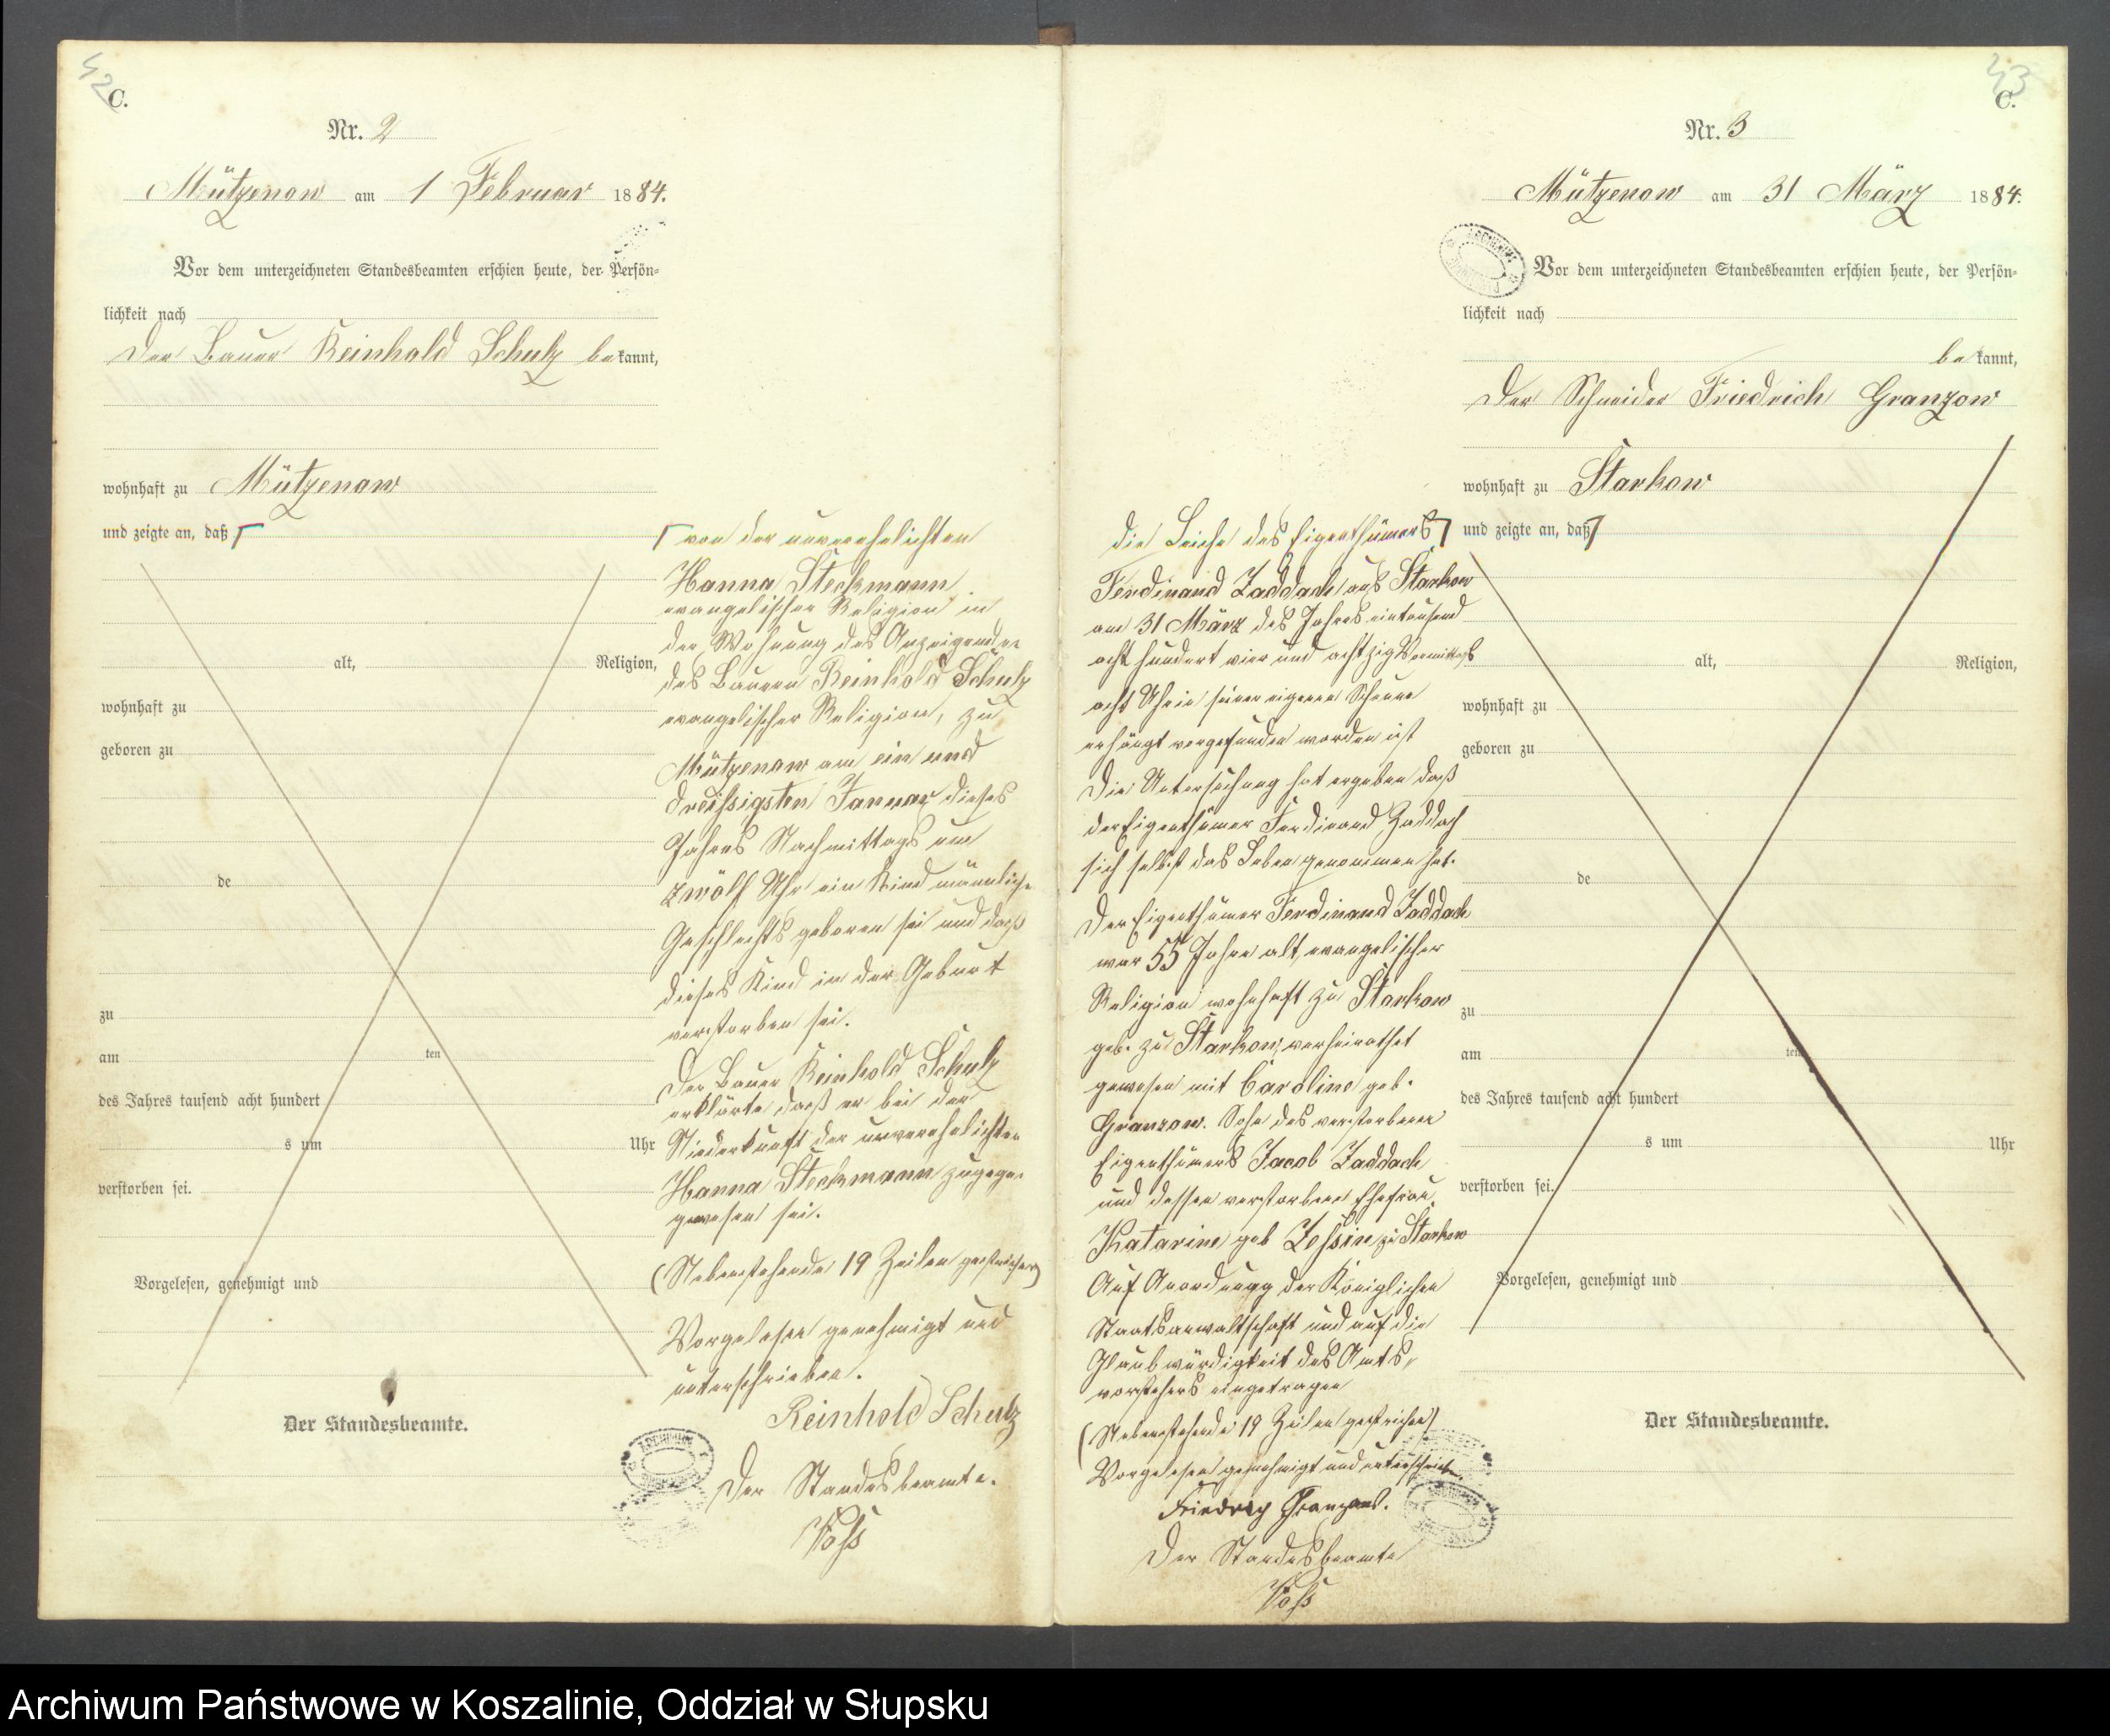 42
C.
Nr. 2
Mützenow am 1 Februar 1884.
Vor dem unterzeichneten Standesbeamten erschien heute, der Persön-
lichkeit nach
Der Bauer Reinhold Schulz bekannt,
wohnhaft zu Mützenow
und zeigte an, daß
alt, Religion,
wohnhaft zu
geboren zu
de
zu
am ten
des Jahres tausend acht hundert
s um Uhr
verstorben sei.
Vorgelesen, genehmigt und
Der Standesbeamte.
von der unverehelichten
Hanna Steckmann
evangelischer Religion in
der Wohnung des Anzeigenden
des Bauern Reinhold Schulz
evangelischer Religion, zu
Mützenow am ein und
dreissigsten Januar dieses
Jahres Nachmittags um
zwölf Uhr ein Kind männlichen
Geschlechts geboren sei und daß
dieses Kind in der Geburt
verstorben sei.
Der Bauer Reinhold Schulz
erklärte daß er bei der
Niederkunft der unverehelichten
Hanna Steckmann zugegen
gewesen sei.
(Nebenstehende 19 Zeilen gestrichen)
Vorgelesen genehmigt und
unterschrieben.
Reinhold Schulz
Der Standesbeamte.
Voss
43
C.
Nr. 3
Mützenow am 31 März 1884.
Vor dem unterzeichneten Standesbeamten erschien heute, der Persön-
lichkeit nach
bekannt,
Der Schneider Friedrich Granzow
wohnhaft zu Starkow
und zeigte an, daß
alt, Religion,
wohnhaft zu
geboren zu
de
zu
am ten
des Jahres tausend acht hundert
s um Uhr
verstorben sei.
Vorgelesen, genehmigt und
Der Standesbeamte.
die Leiche des Eigenthümers
Ferdinand Zaddach aus Starkow
am 31 März des Jahres eintausend
acht hundert vier und achtzig Vormittags
acht Uhr in seiner eigenen Scheune
erhängt vorgefunden worden ist
Die Untersuchung hat ergeben daß
der Eigenthümer Ferdinand Zaddach
sich selbst das Leben genommen hat.
Der Eigenthümer Ferdinand Zaddach
war 55 Jahre alt, evangelischer
Religion wohnhaft zu Starkow
geb. zu Starkow, verheirathet
gewesen mit Caroline geb.
Granzow. Sohn des verstorbenen
Eigenthümers Jacob Zaddach
und dessen verstorbene Ehefrau
Katarine geb Zessin zu Starkow
Auf Anordnung der Königlichen
Staatsanwaltschaft und auf die
Glaubwürdigkeit des Amts-
vorstehers eingetragen
(Nebenstehende 19 Zeilen gestrichen)
Vorgelesen genehmigt und unterschrieben
Friedrich Granzow.
Der Standesbeamte
Voss
Archiwum Państwowe w Koszalinie, Oddział w Słupsku